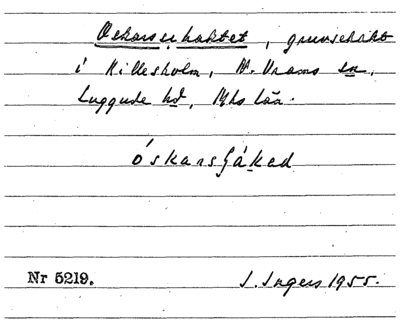 Oskarsschaktet, gruvschakt
i Hillesholm, N. Vrams sn,
Luggude hd, Mhs län.
óskarsʃákad
Nr 5219. I. Ingers 1955.